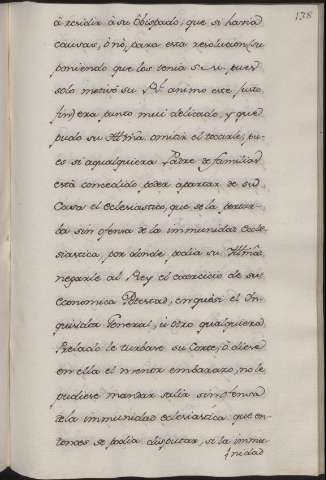 138
à residir à su Obispado; que si havia
causas, ò nò, para esta resolucion (su
poniendo que las tenia S. M. pues
solo motivò su Rl. animo este justo
fin) era punto mui delicado, y que
pudo su Illma. omitir el tocarle, pu-
es si aqualquiera Padre de familias
està concedido poder apartar de su
Casa el eclesiastico, que se la pertur-
ba sin ofensa de la immunidad Ecle-
siastica, por donde podia su Illma.
negarle al Rey el exercicio de su
economica Potestad, en què si el In-
quisidor General, ù otro qualquiera
Prelado le turbare su Corte, ò diere
en ella el menor embarazo, no le
pudiese mandar salir sin ofensa
de la immunidad eclesiastica que en-
tonces se podia disputar, si la immu-
nidad